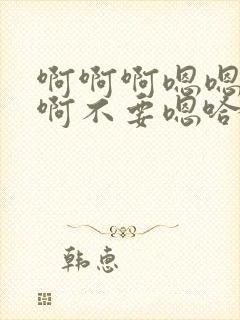 啊啊啊嗯嗯
啊不要嗯哈
韩惠